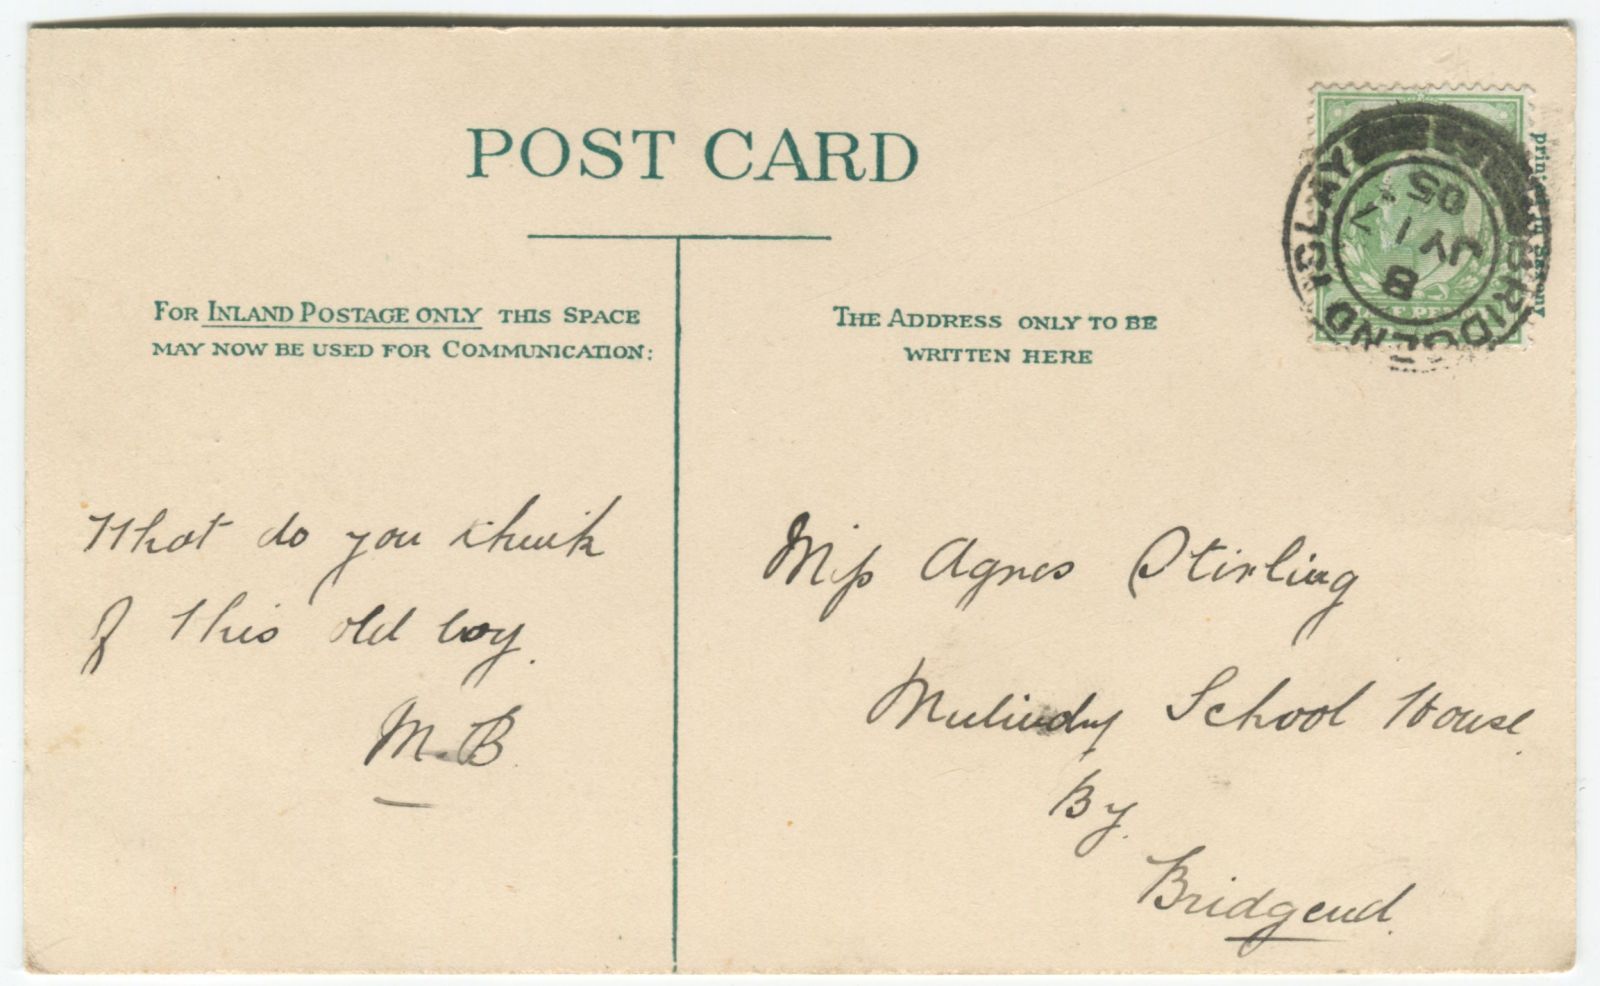 POST CARD
FOR INLAND POSTAGE ONLY THIS SPACE
MAY NOW BE USED FOR COMMUNICATION:
THE ADDRESS ONLY TO BE
WRITTEN HERE
printed in Saxony
BRIDGEND ISLAY
8
JY 17
05
What do you think
of this old boy.
M.B.
Miss Agnes Stirling
Mulindry School House.
By.
Bridgend.